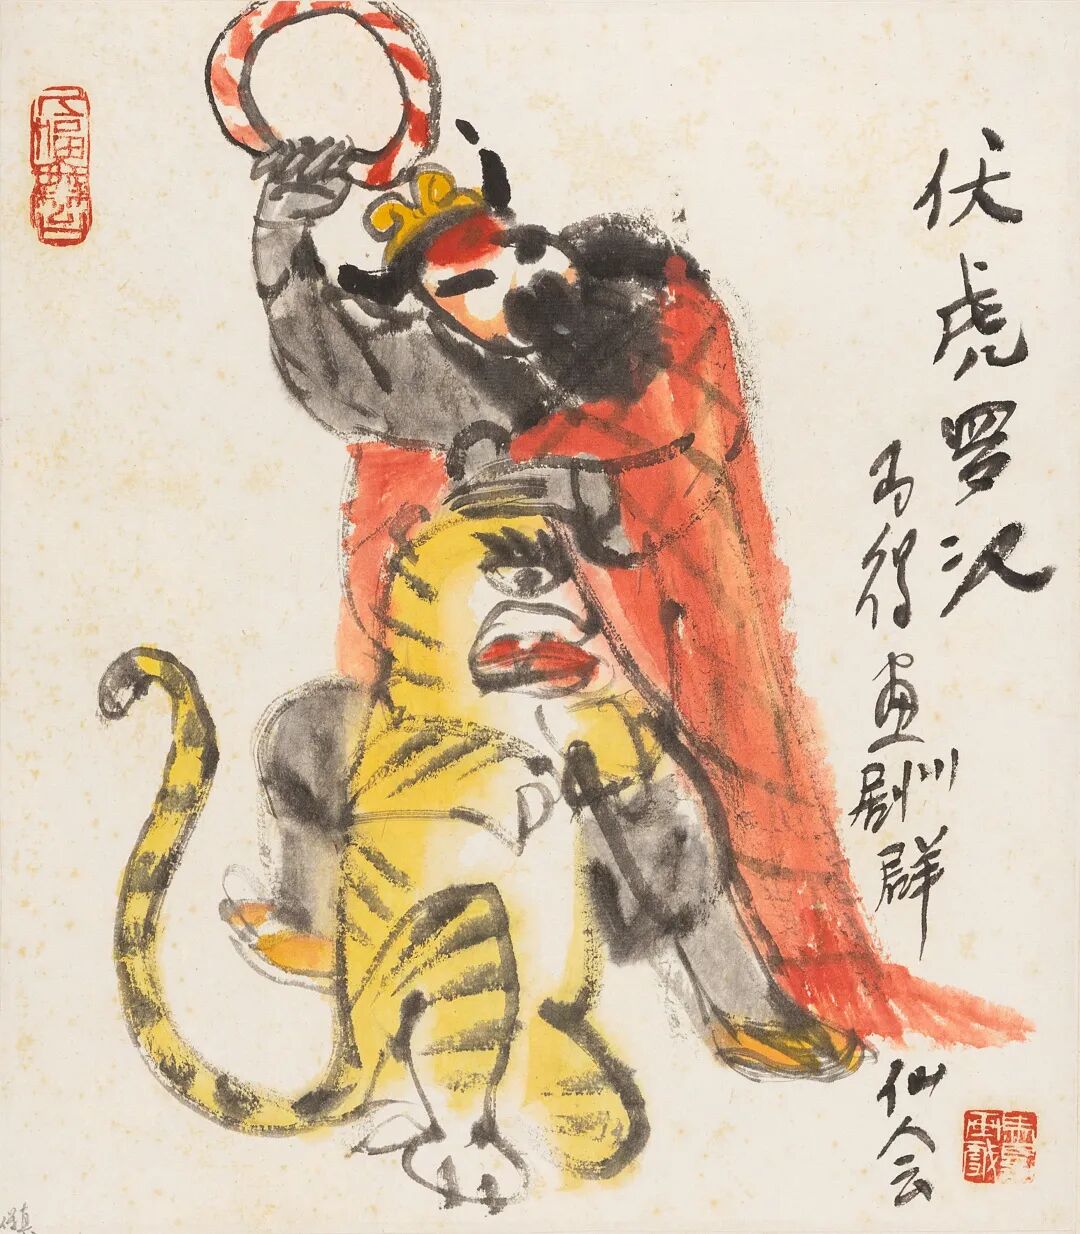 伏虎罗汉
马得画川剧群
仙会